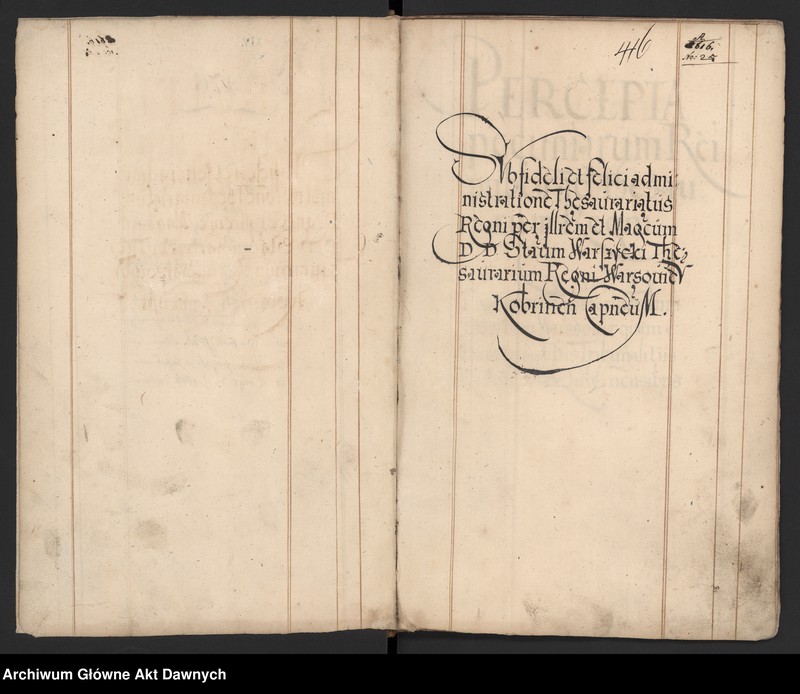 416
1616.
No: 25
Sub fideli et felici admi
nistratione Thesaurariatus
Regni per jllrem et Magcum
D D Staum Warszycki The
saurarium Regni Warsovien
Kobrinen Capneum.
PERCEPTA
pecuniarum Rei
Archiwum Główne Akt Dawnych